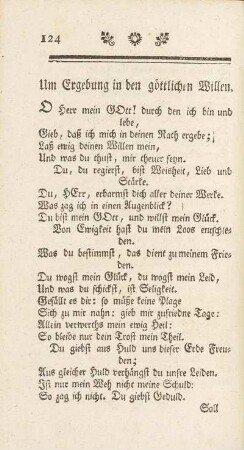 124
Um Ergebung in den göttlichen Willen.
O Herr mein GOtt! durch den ich bin und
lebe,
Gieb, daß ich mich in deinen Rath ergebe;
Laß ewig deinen Willen mein,
Und was du thust, mir theuer seyn.
Du, du regierst, bist Weisheit, Lieb und
Stärke.
Du, HErr, erbarmst dich aller deiner Werke.
Was zag ich in einen Augenblick?
Du bist mein GOtt, und willst mein Glück.
Von Ewigkeit hast du mein Loos entschie-
den.
Was du bestimmst, das dient zu meinem Frie-
den.
Du wogst mein Glück, du wogst mein Leid,
Und was du schickst, ist Seligkeit.
Gefällt es dir: so müße keine Plage
Sich zu mir nahn: gieb mir zufriedne Tage:
Allein verwerths mein ewig Heil:
So bleibe nur dein Trost mein Theil.
Du giebst aus Huld uns dieser Erde Freu-
den;
Aus gleicher Huld verhängst du unsre Leiden.
Ist nur mein Weh nicht meine Schuld:
So zag ich nicht. Du giebst Geduld.
Soll